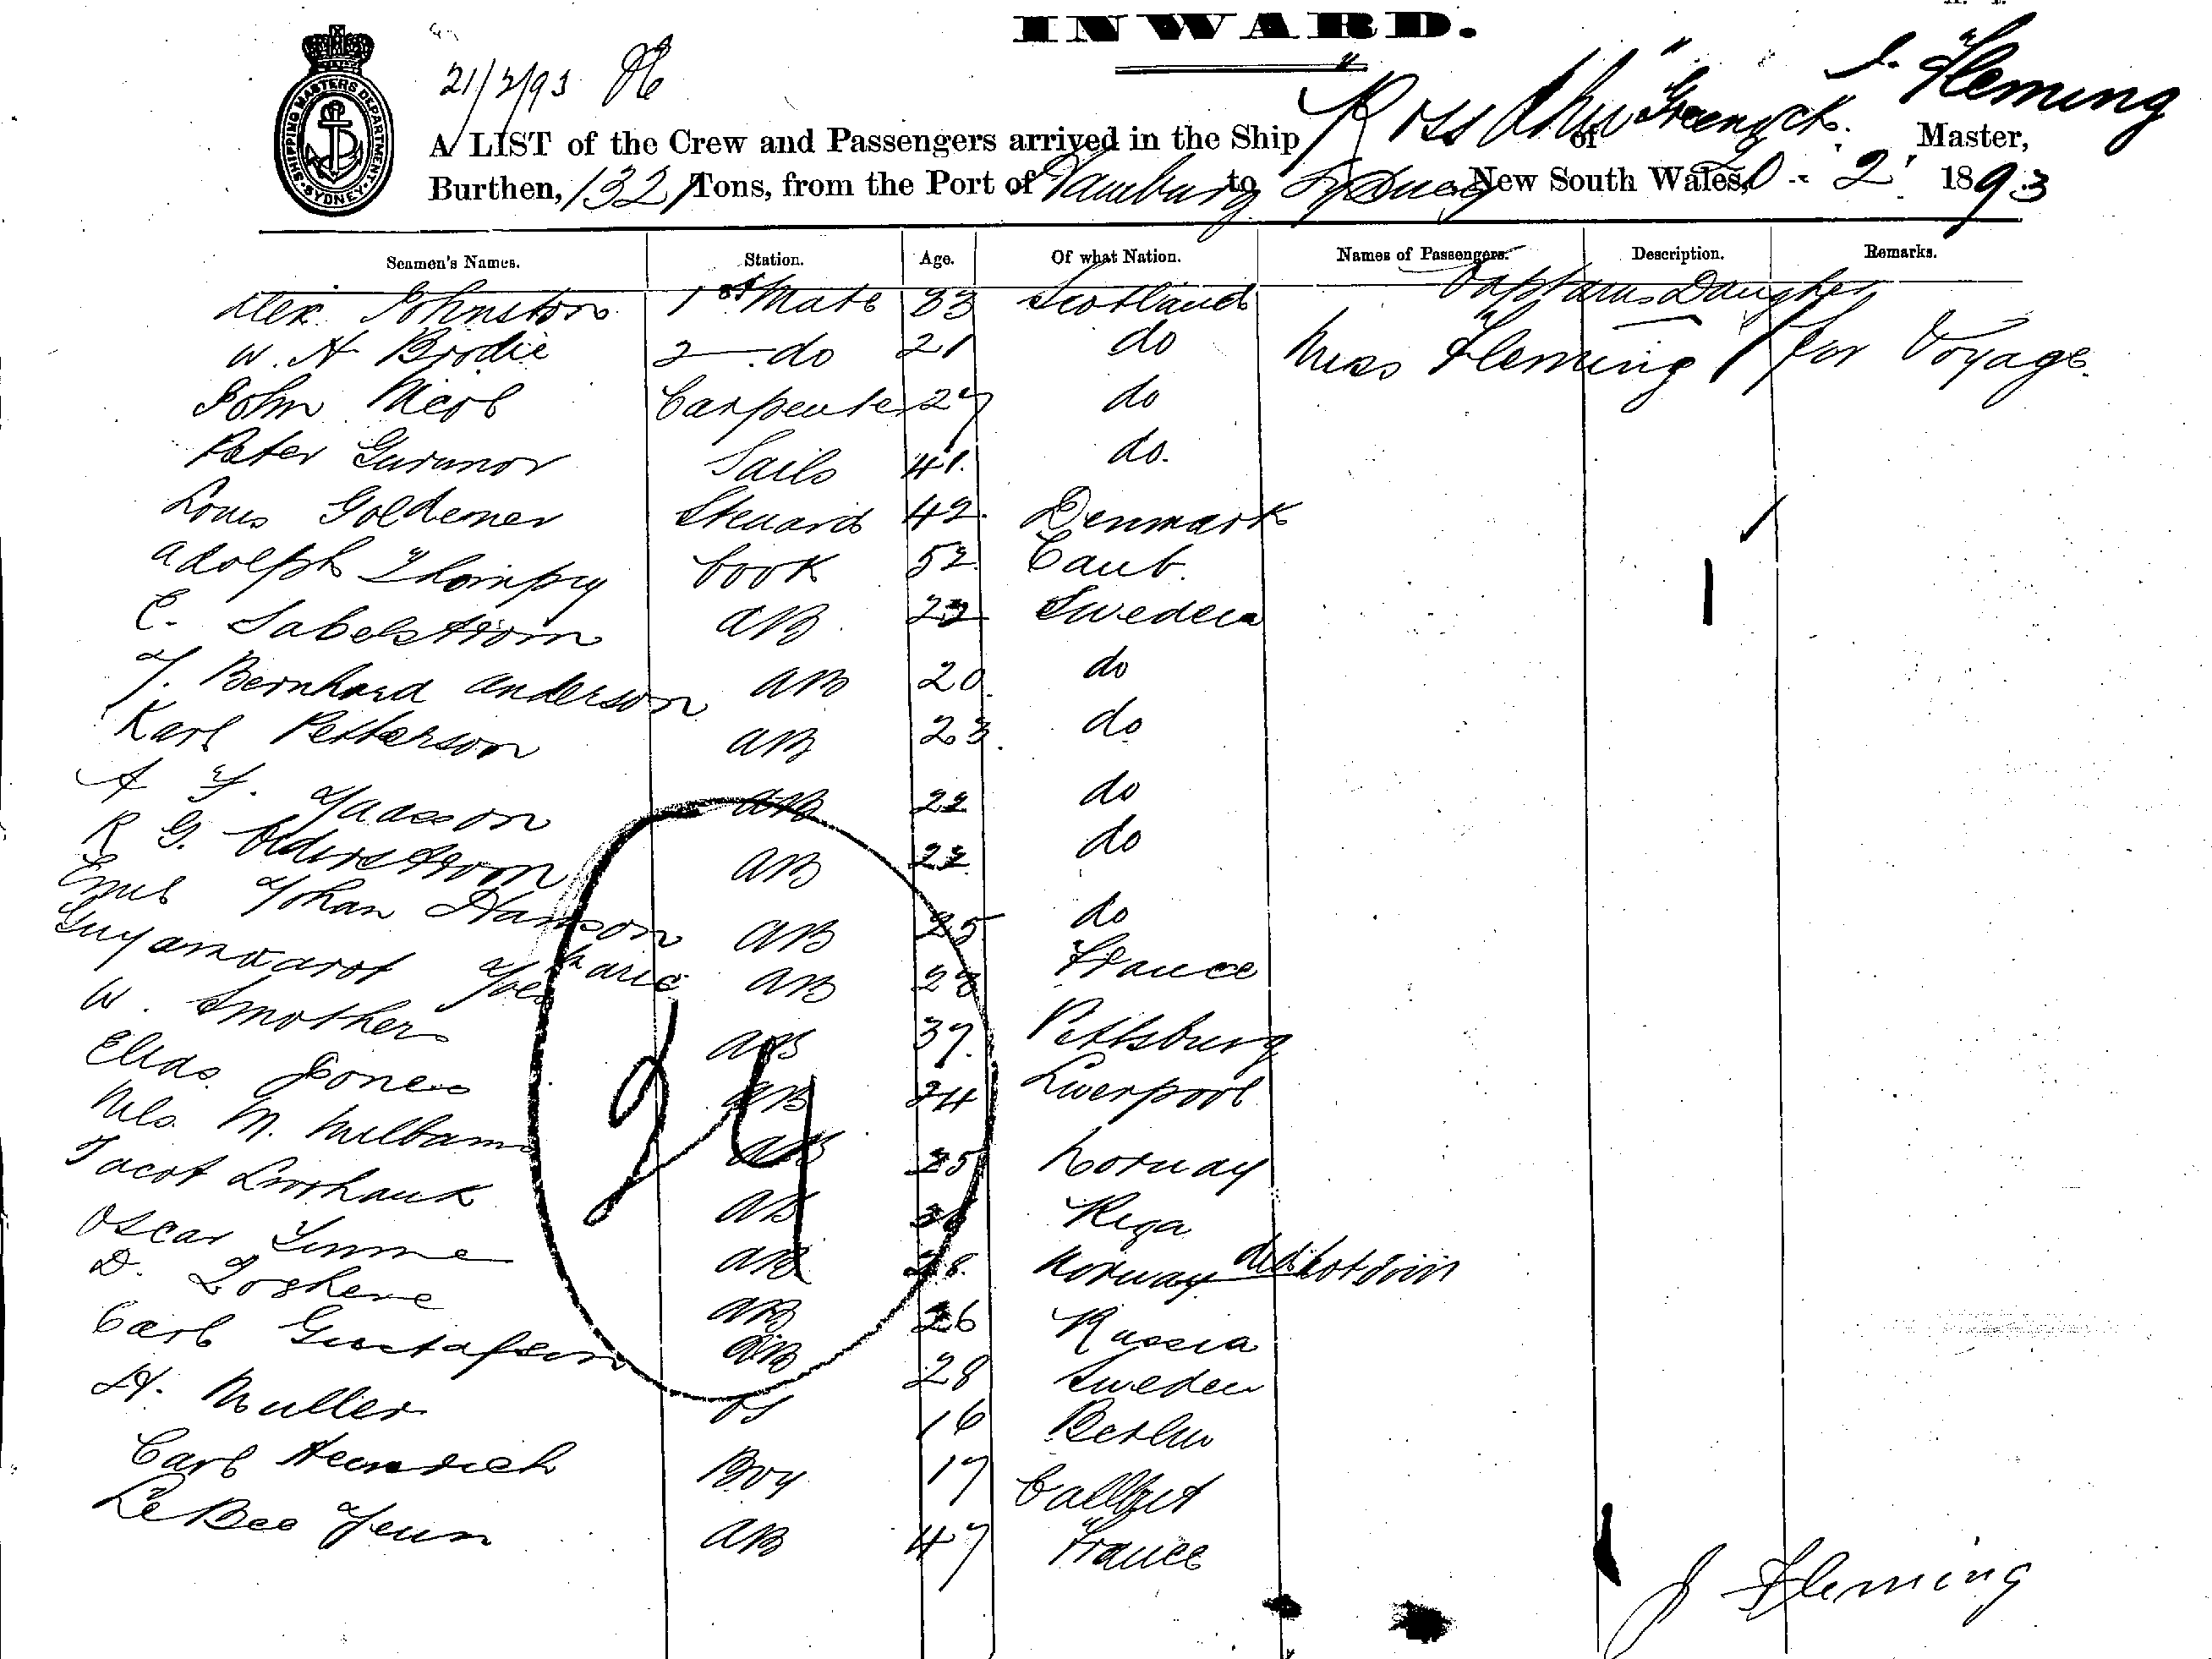 INWARD.
21/2/93
SHIPPING MASTERS DEPARTMENT. SYDNEY.
A LIST of the Crew and Passengers arrived in the Ship "Ross-shire" of Greenock. J. Fleming Master,
Burthen, 1321 Tons, from the Port of Hamburg to Sydney New South Wales, 20 - 2 1893
Seamen's Names. Station. Age. Of what Nation. Names of Passengers. Description. Remarks.
Captains Daughter
Alex. Johnston 1st Mate 33 Scotland
W. H. Brodie 2 - do 21 do Miss Fleming / for Voyage.
John Nicol Carpenter 27 do
Peter 41. do.
Louis Goldemer Steward 42. Denmark
Adolph Cook 52
C. Sabelstrom AB 22 Sweden
J. Bernhard Anderson AB 20. do
Karl Petterson AB 23. do
A. F. AB 22 do
R G. AB 22 do
Emil Johan Hanson AB 25 do
Yves Marie AB 28 France
W. Smothers AB 37. Pittsburg
Elias Jones AB 24 Liverpool
Nils. M. AB 25 Norway
AB Riga
Oscar AB 28. Norway did not join
D. AB 26 Russia
Carl Gustafson AB 28 Sweden
H. Muller OS 16 Berlin
Carl Heinrich Boy 17
Le Bec Jean AB 47 France
24
J Fleming